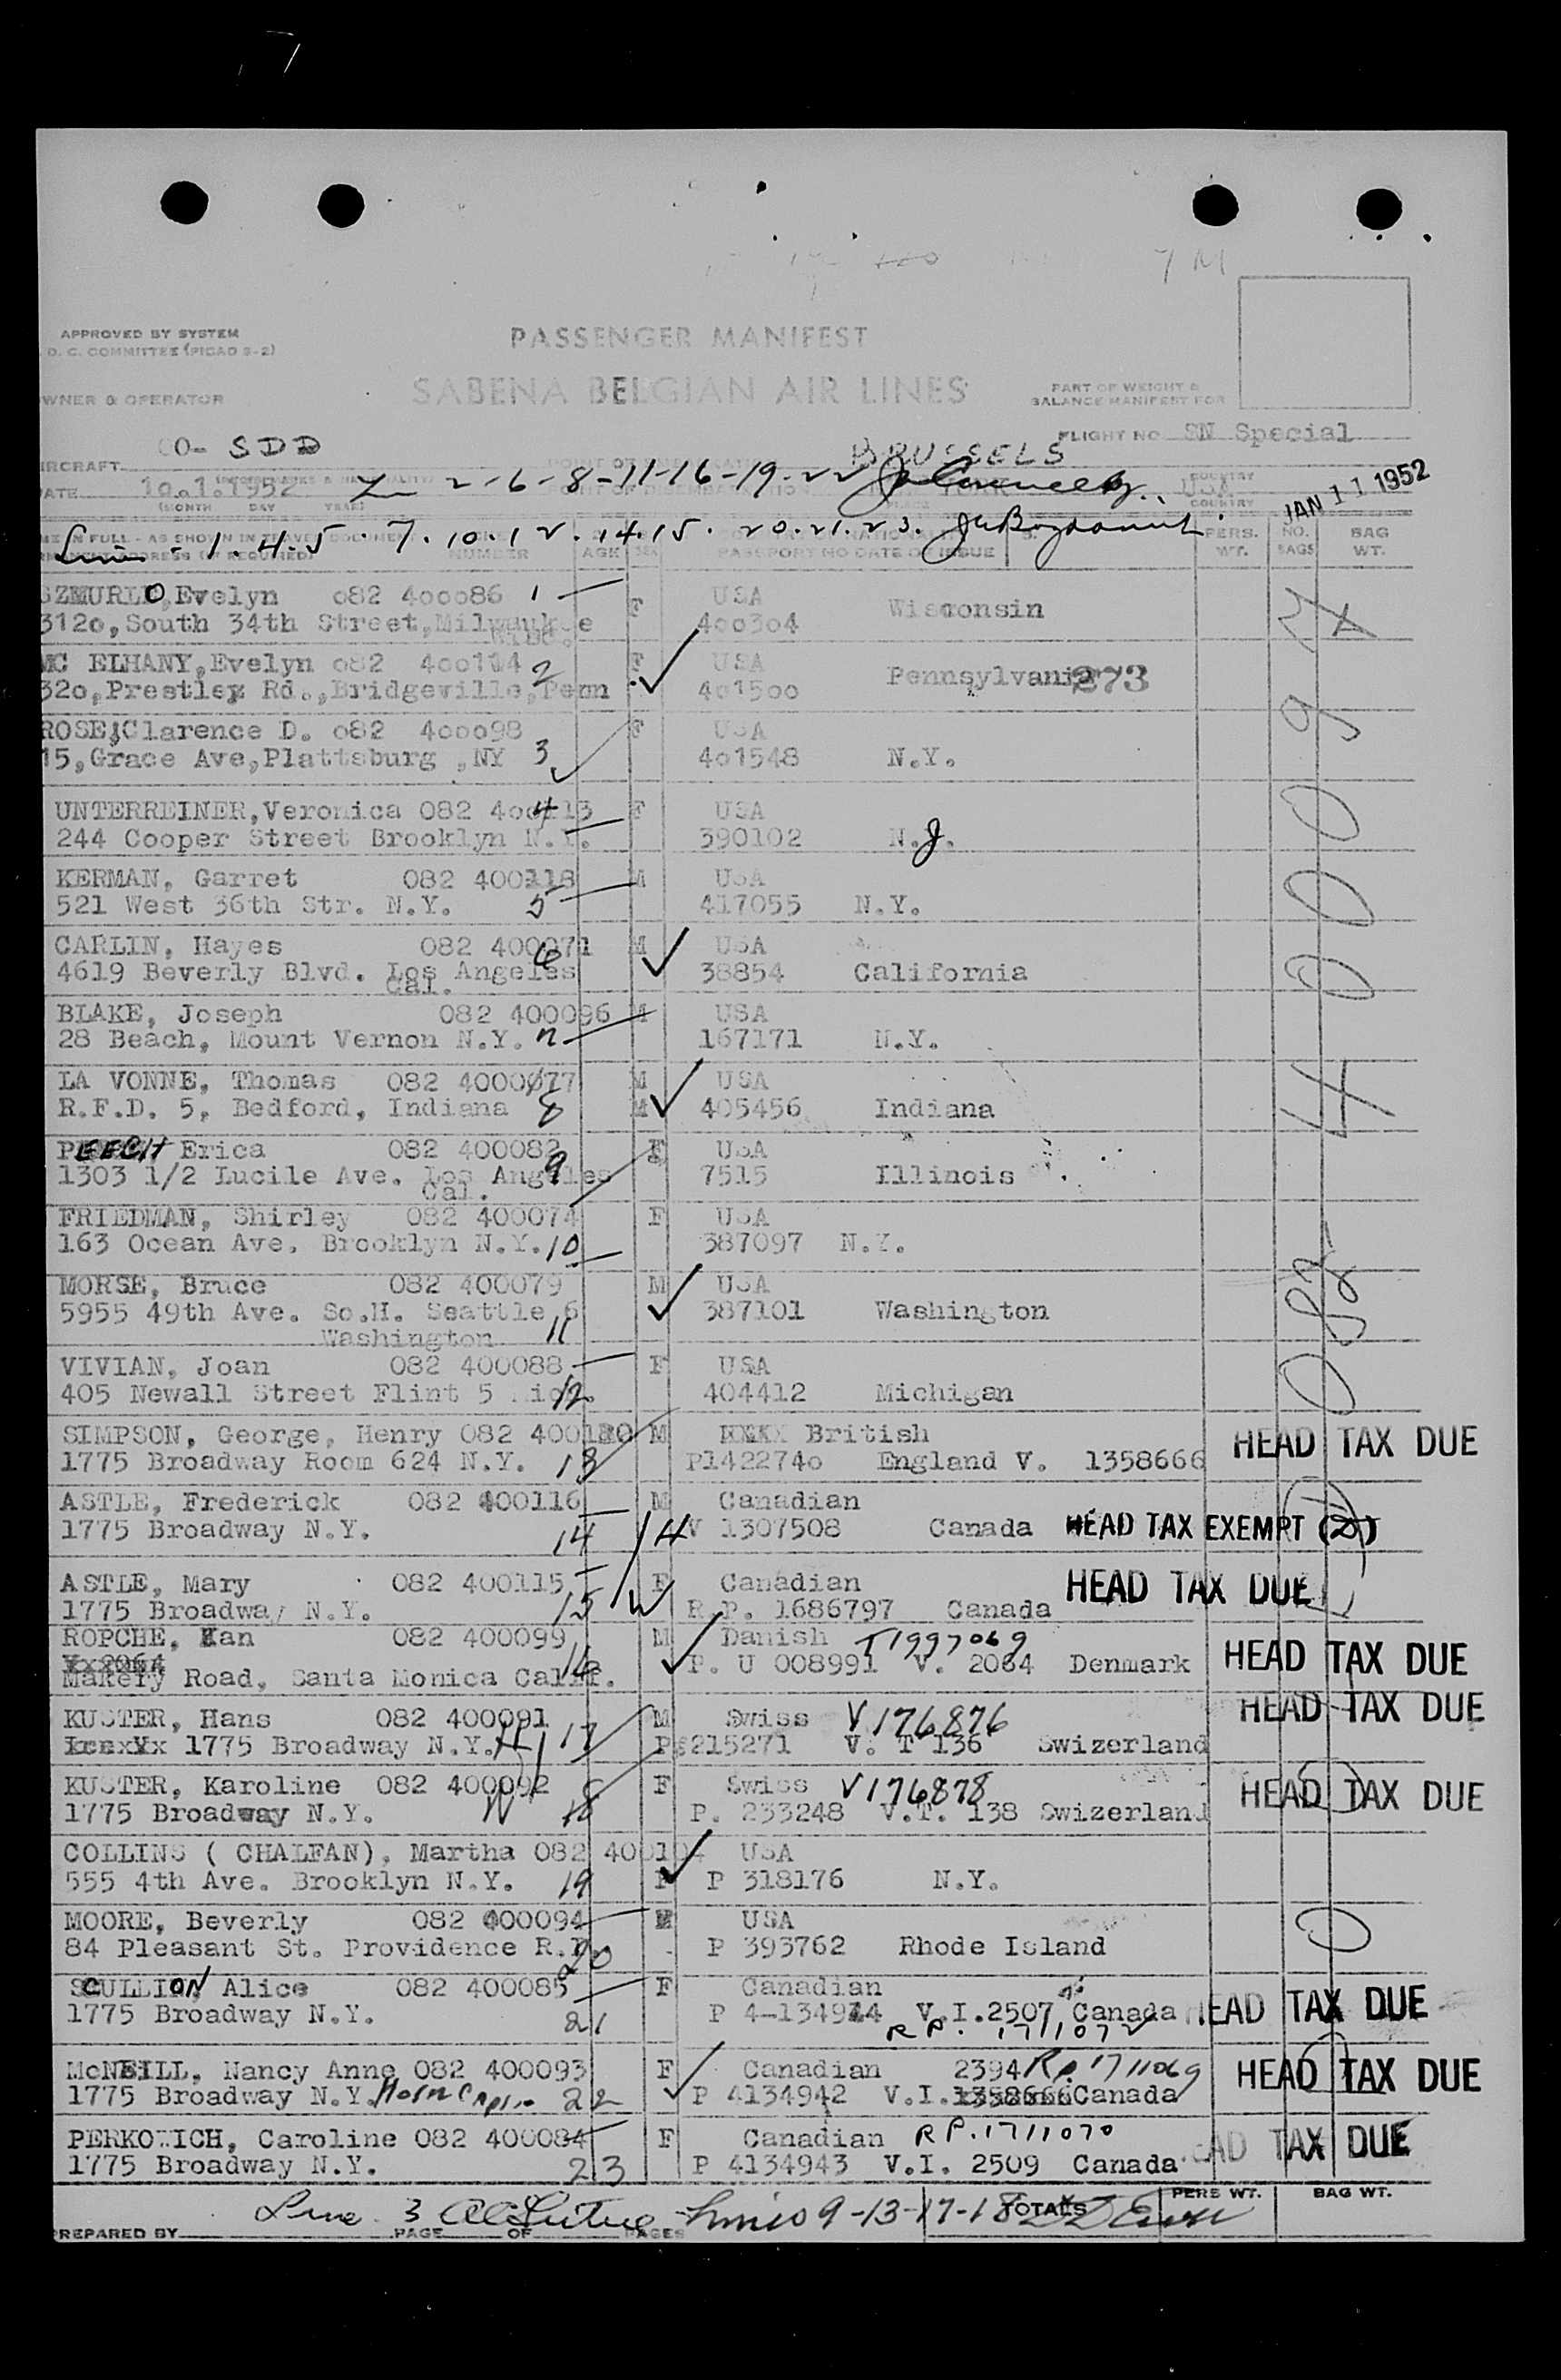 7 M
APPROVED BY SYSTEM
D. C. COMMITTEE (PICAO S-2)
PASSENGER MANIFEST
SABENA BELGIAN AIR LINES
WNER & OPERATOR
PART OF WEIGHT &
BALANCE MANIFEST FOR
FLIGHT NO SN Special
OO- SDD
BRUSSELS
IRCRAFT
ATE 10.1.1952
(MONTH DAY YEAR)
2-6-8-11-16-19-22
COUNTRY
USA
COUNTRY
JAN 11 1952
1.4.5.7.10.12.14.15.20.21.23.
ME IN FULL - AS SHOWN IN TRAVEL DOCUMENT
NUMBER
AGE
SEX
PASSPORT NO DATE OF ISSUE
PERS. WT.
NO. BAGS
BAG WT.
SZMURLO, Evelyn 082 400086 1 F USA
3120, South 34th Street, Milwaukee 400304 Wisconsin
MC ELHANY, Evelyn 082 400114 2 F USA
320, Prestley Rd., Bridgeville, Penn 401500 Pennsylvania 273
ROSE, Clarence D. 082 400098 F USA
15, Grace Ave, Plattsburg ,NY 3 401548 N.Y.
UNTERREINER, Veronica 082 400113 4 F USA
244 Cooper Street Brooklyn N.Y. 390102 N.J.
KERMAN, Garret 082 400118 M USA
521 West 36th Str. N.Y. 5 417055 N.Y.
CARLIN, Hayes 082 400071 6 M USA
4619 Beverly Blvd. Los Angeles 38854 California
Cal.
BLAKE, Joseph 082 400096 M USA
28 Beach, Mount Vernon N.Y. 7 167171 N.Y.
LA VONNE, Thomas 082 4000077 M USA
R.F.D. 5, Bedford, Indiana 8 M 405456 Indiana
PEECH Erica 082 400082 F USA
1303 1/2 Lucile Ave. Los Angeles 9 7515 Illinois
Cal.
FRIEDMAN, Shirley 082 400074 F USA
163 Ocean Ave. Brooklyn N.Y. 10 387097 N.Y.
MORSE, Bruce 082 400079 M USA
5955 49th Ave. So.H. Seattle 6 387101 Washington
Washington 11
VIVIAN, Joan 082 400088 F USA
405 Newall Street Flint 5 Mich. 12 404412 Michigan
SIMPSON, George, Henry 082 400120 M British HEAD TAX DUE
1775 Broadway Room 624 N.Y. 13 P1422740 England V. 1358666
ASTLE, Frederick 082 400116 M Canadian
1775 Broadway N.Y. 14 H V 1307508 Canada HEAD TAX EXEMPT (2)
ASTLE, Mary 082 400115 F Canadian HEAD TAX DUE
1775 Broadway N.Y. 15 W R.P. 1686797 Canada
ROPCHE, Kan 082 400099 M Danish T1997069
Makery Road, Santa Monica Calif. 16 P. U 008991 V. 2064 Denmark HEAD TAX DUE
KUSTER, Hans 082 400091 M Swiss V176876 HEAD TAX DUE
1775 Broadway N.Y. H 17 P 215271 V. T 136 Swizerland
KUSTER, Karoline 082 400092 F Swiss V176878 HEAD TAX DUE
1775 Broadway N.Y. W 18 P. 233248 V.T. 138 Swizerland
COLLINS ( CHALFAN), Martha 082 400104 USA
555 4th Ave. Brooklyn N.Y. 19 F P 318176 N.Y.
MOORE, Beverly 082 400094 USA
84 Pleasant St. Providence R.I. 20 P 393762 Rhode Island
SCULLION, Alice 082 400085 F Canadian
1775 Broadway N.Y. 21 P 4-134944 V.I.2507 Canada HEAD TAX DUE
R P. 1711072
McNEILL, Nancy Anne 082 400093 F Canadian 2394 R.P. 1711069 HEAD TAX DUE
1775 Broadway N.Y. 22 P 4134942 V.I.1358666 Canada
PERKOVICH, Caroline 082 400084 F Canadian R P. 1711070
1775 Broadway N.Y. 23 P 4134943 V.I. 2509 Canada HEAD TAX DUE
Line 3 Lines 9-13-17-18
TOTALS
PERS WT.
BAG WT.
REPARED BY PAGE OF PAGES